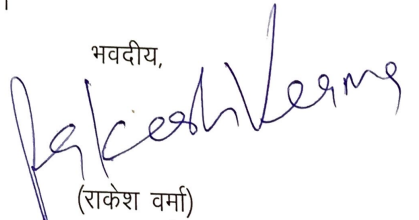 भवदीय,
Rakesh Verma
(राकेश वर्मा)